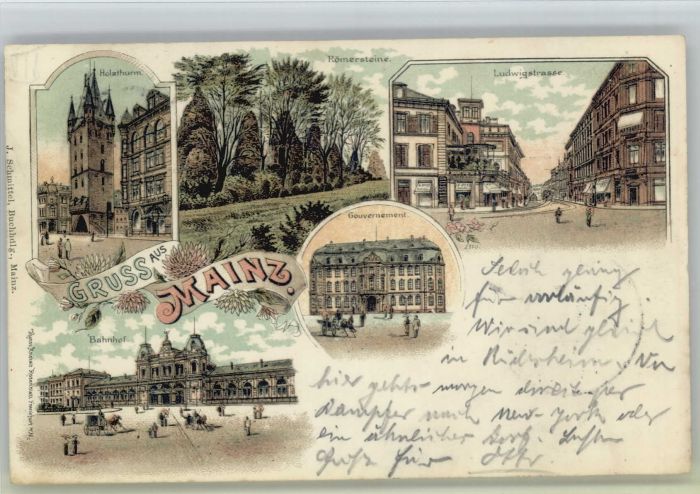 Holzthurm.
Römersteine.
Ludwigstrasse.
J. Schmittel, Buchhdlg., Mainz.
Gouvernement.
GRUSS AUS
MAINZ.
Bahnhof.
für vorläufig.
Wir sind gleich
in Rüdesheim. Von
hier gehts morgen
Dampfer nach New-York oder
ein ähnlicher
Gruß für Otto